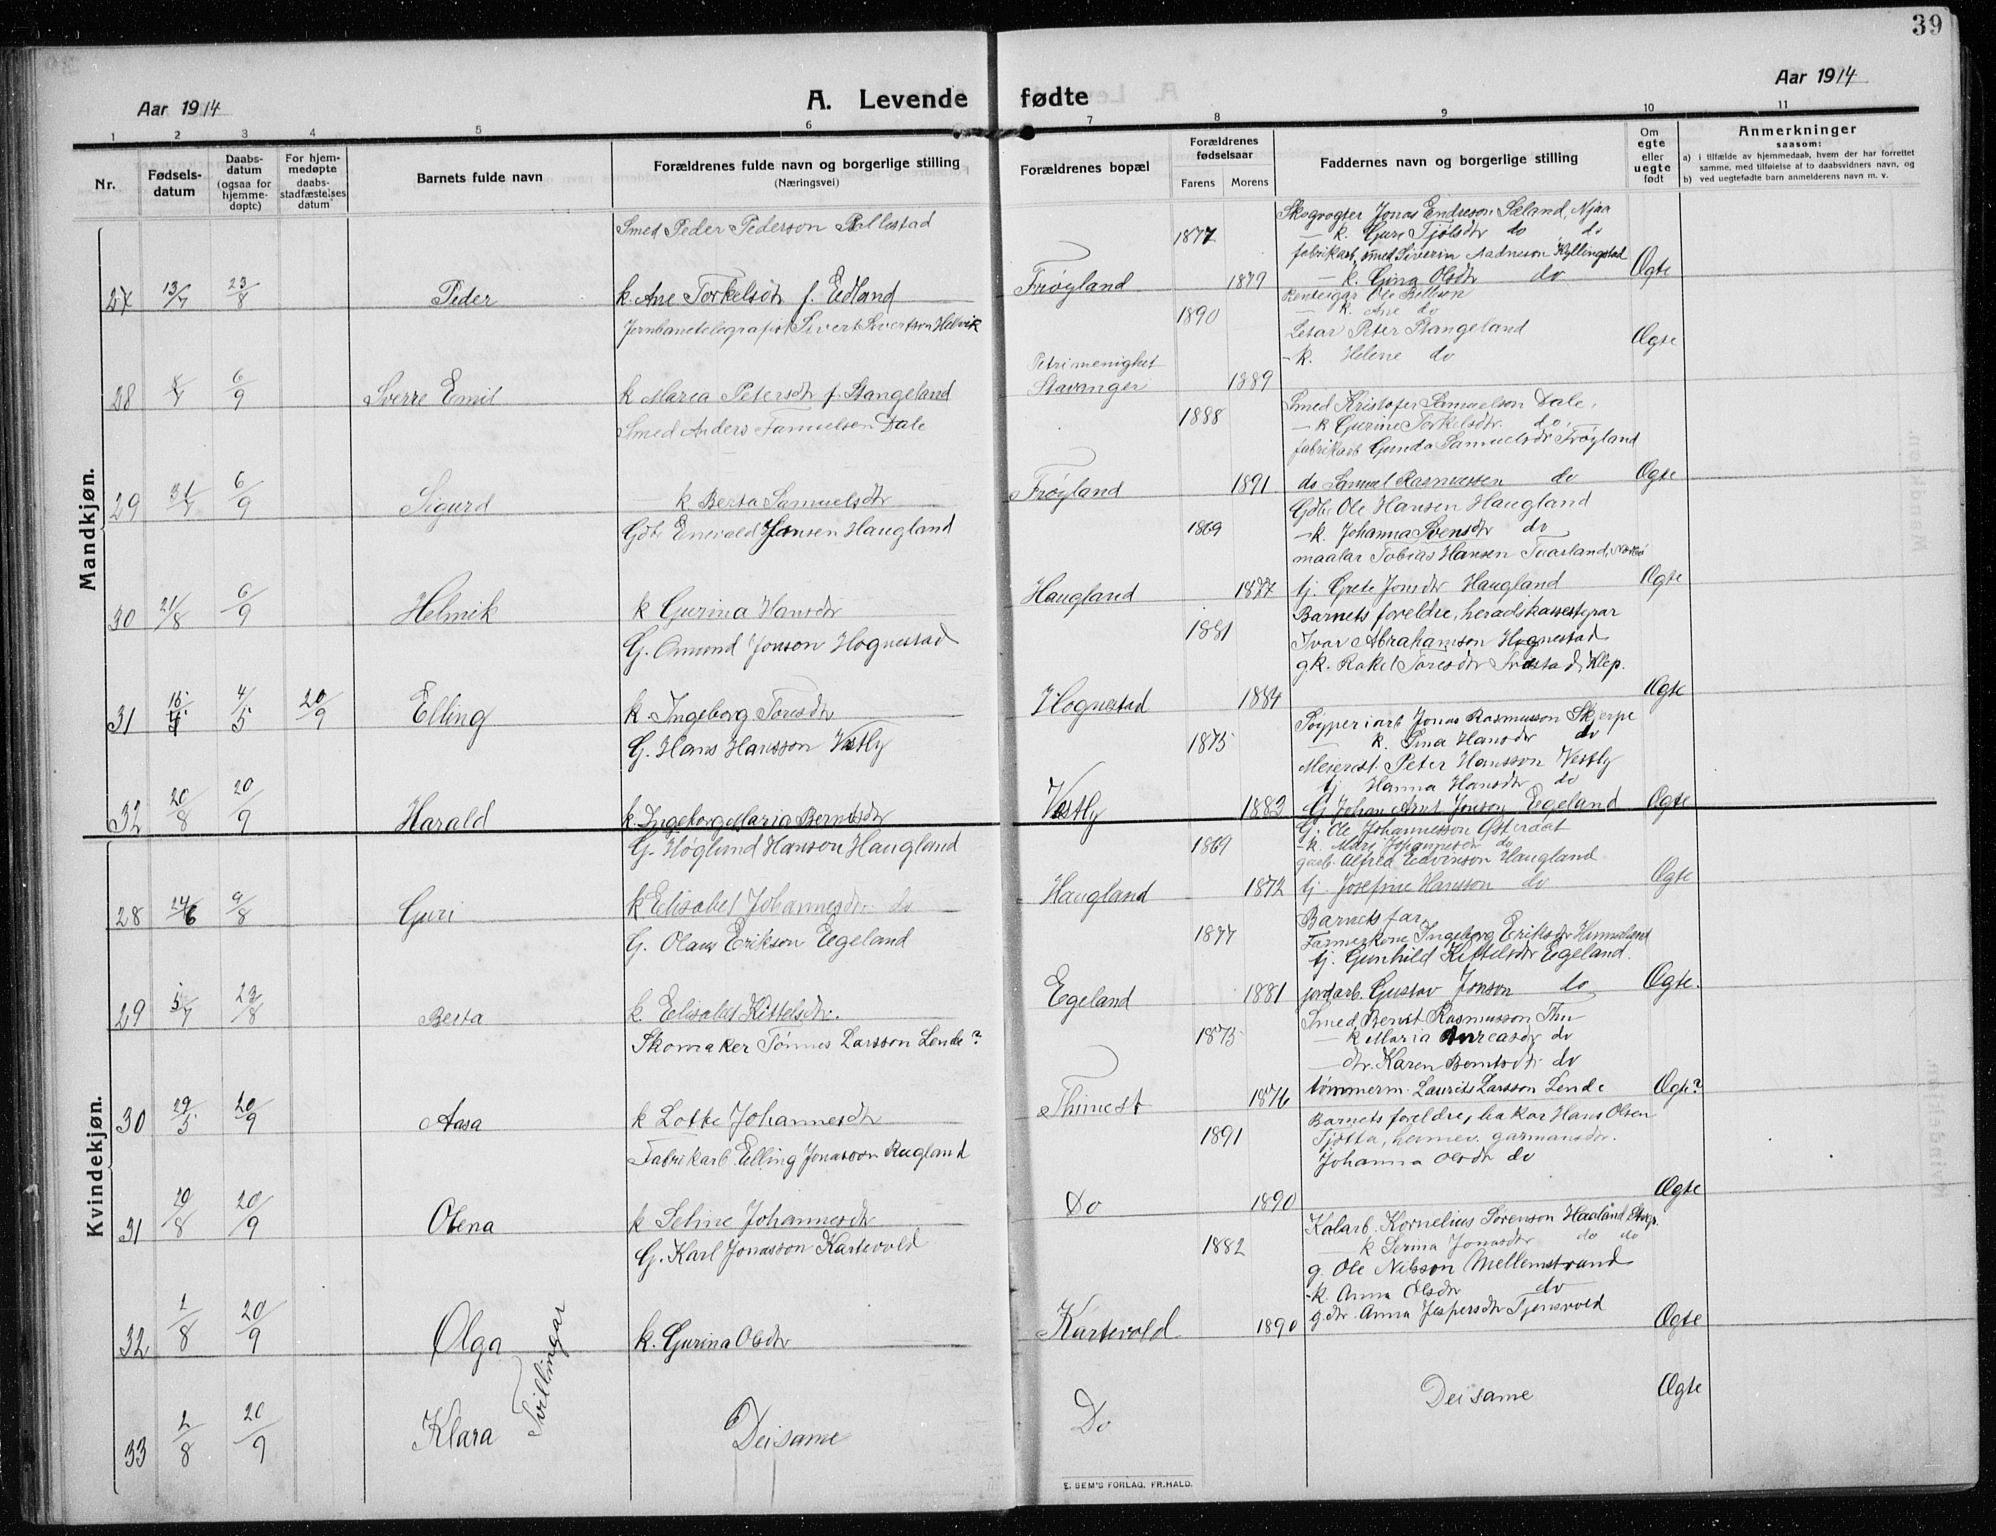 39
Aar 1914
A. Levende fødte
Aar 1914
1 2 3 4 5 6 7 8 9 10 11
Nr.
Fødsels-
datum
Daabs-
datum
(ogsaa for
hjemme-
døpte)
For hjem-
medøpte
daabs-
stadfæstelses
datum
Barnets fulde navn
Forældrenes fulde navn og borgerlige stilling
(Næringsvei)
Forældrenes bopæl
Forældrenes
fødselsaar
Farens Morens
Faddernes navn og borgerlige stilling
Om
egte
eller
uegte
født
Anmerkninger
saasom:
a) i tilfælde av hjemmedaab, hvem der har forrettet
samme, med tilføielse af to daabsvidners navn, og
b) ved uegtefødte barn anmelderens navn m. v.
Mandkjøn.
Smed Peder Pederson
1877
Skogvogter Jonas Endreson Sæland, Njaa
k. Guri Tjølsdtr do do
fabrikarb. smed Siverin Aadneson Kyllingstad
27 13/7 23/8 Peder k. Ane Torkelsdtr f. Edland Frøyland 1879 k. Gina Olsdtr do Ægte
Jernbanetelegrafist Sivert Sivertson Helvik
1890
Ole
k. Ane do
Peter Stangeland
k. Helene do
Ægte
Petri menighet
28 6/9 Sverre Emil k Marea Petersdtr f. Stangeland Stavanger 1889
Smed Anders Samuelsen Dale
1888
Smed Kristofer Samuelson Dale,
k Gurine Torkelsdtr. do
fabrikarb Gunda Samuelsdtr Frøyland
29 31/7 6/9 Sigurd k Berta Samuelsdtr Frøyland 1891 do Samuel Rasmussen do Ægte
Gdb. Enevald Hansen Haugland
1869
Gdb. Ole Hansen Haugland
k. Johanna Svensdtr do
maalar Tobias Hansen Tuasland,
30 21/8 6/9 Helmik k Gurina Hansdtr Haugland 1877 tj. Grete Jonsdtr Haugland Ægte
G. Omund Jonson Hognestad
1881
Barnets foreldre, heradskassestyrar
Ivar Abrahamson Hognestad
gk. Rakel Toresdtr Klep.
31 4/5 20/9 Elling k Ingeborg Toresdtr Hognestad 1884 Ægte
G. Hans Hansson Vestly
1875
Jonas Rasmusson Skjerpe
k. Sina Hansdtr do
Meierist. Peter Hansson Vestly
tj Hanna Hansdtr do
32 20/8 20/9 Harald k. Ingeborg Maria Berntsdtr Vestly 1883 G Johan Arnt Jonson Egeland Ægte
Kvindekjøn.
G. Høglund Hanson Haugland
1869
G. Ole Johannesson Osteraat
k. Mari Johannesdtr do
gaarb. Alfred Edvinson Haugland
28 24/6 9/8 Guri k Elisabet Johannesdtr do Haugland 1872 tj. Josefine Hansson do Ægte
G. Olaus Erikson Egeland
1877
Barnets far,
Farmerkone Ingeborg Eriksdtr
tj. Gunhild Kittelsdtr Egeland.
29 5/7 23/8 Berta k. Elisabet Kittelsdtr. Egeland 1881 jordarb. Gustav Jonson do Ægte.
Skomaker Tønnes Larsson Lende?
1875
Smed Bernt Rasmusson Thu
k Maria Andreasdtr do
dtr. Karen Berntsdtr do
30 29/5 20/9 Aasa k Lotte Johannesdtr Thimest 1876 tømmerm. Laurits Larsson Lende Ægte?
Fabrikarb. Elling Jonasson Rugland
1891
Barnets foreldre, bakar Hans Olsen
Tjøtta, garmansdtr.
Johanna Olsdtr do
31 20/8 20/9 Olena k Seline Johannesdtr Do 1890 Ægte
G. Karl Jonasson Kartevold
1882
Kalarb. Kornelius Sørenson Haaland
k Serina Jonasdtr do do
g. Ole Nilsson Mellemstrand
k. Anna Olsdtr do
g.dtr. Anna Jespersdtr Tjensvold
32 2/8 20/9 Olga k. Gurina Olsdtr Kartevold 1890 Ægte
Tvillingar
33 2/8 20/9 Klara Dei same Do Dei same Ægte
E. SEM'S FORLAG, FR.HALD.